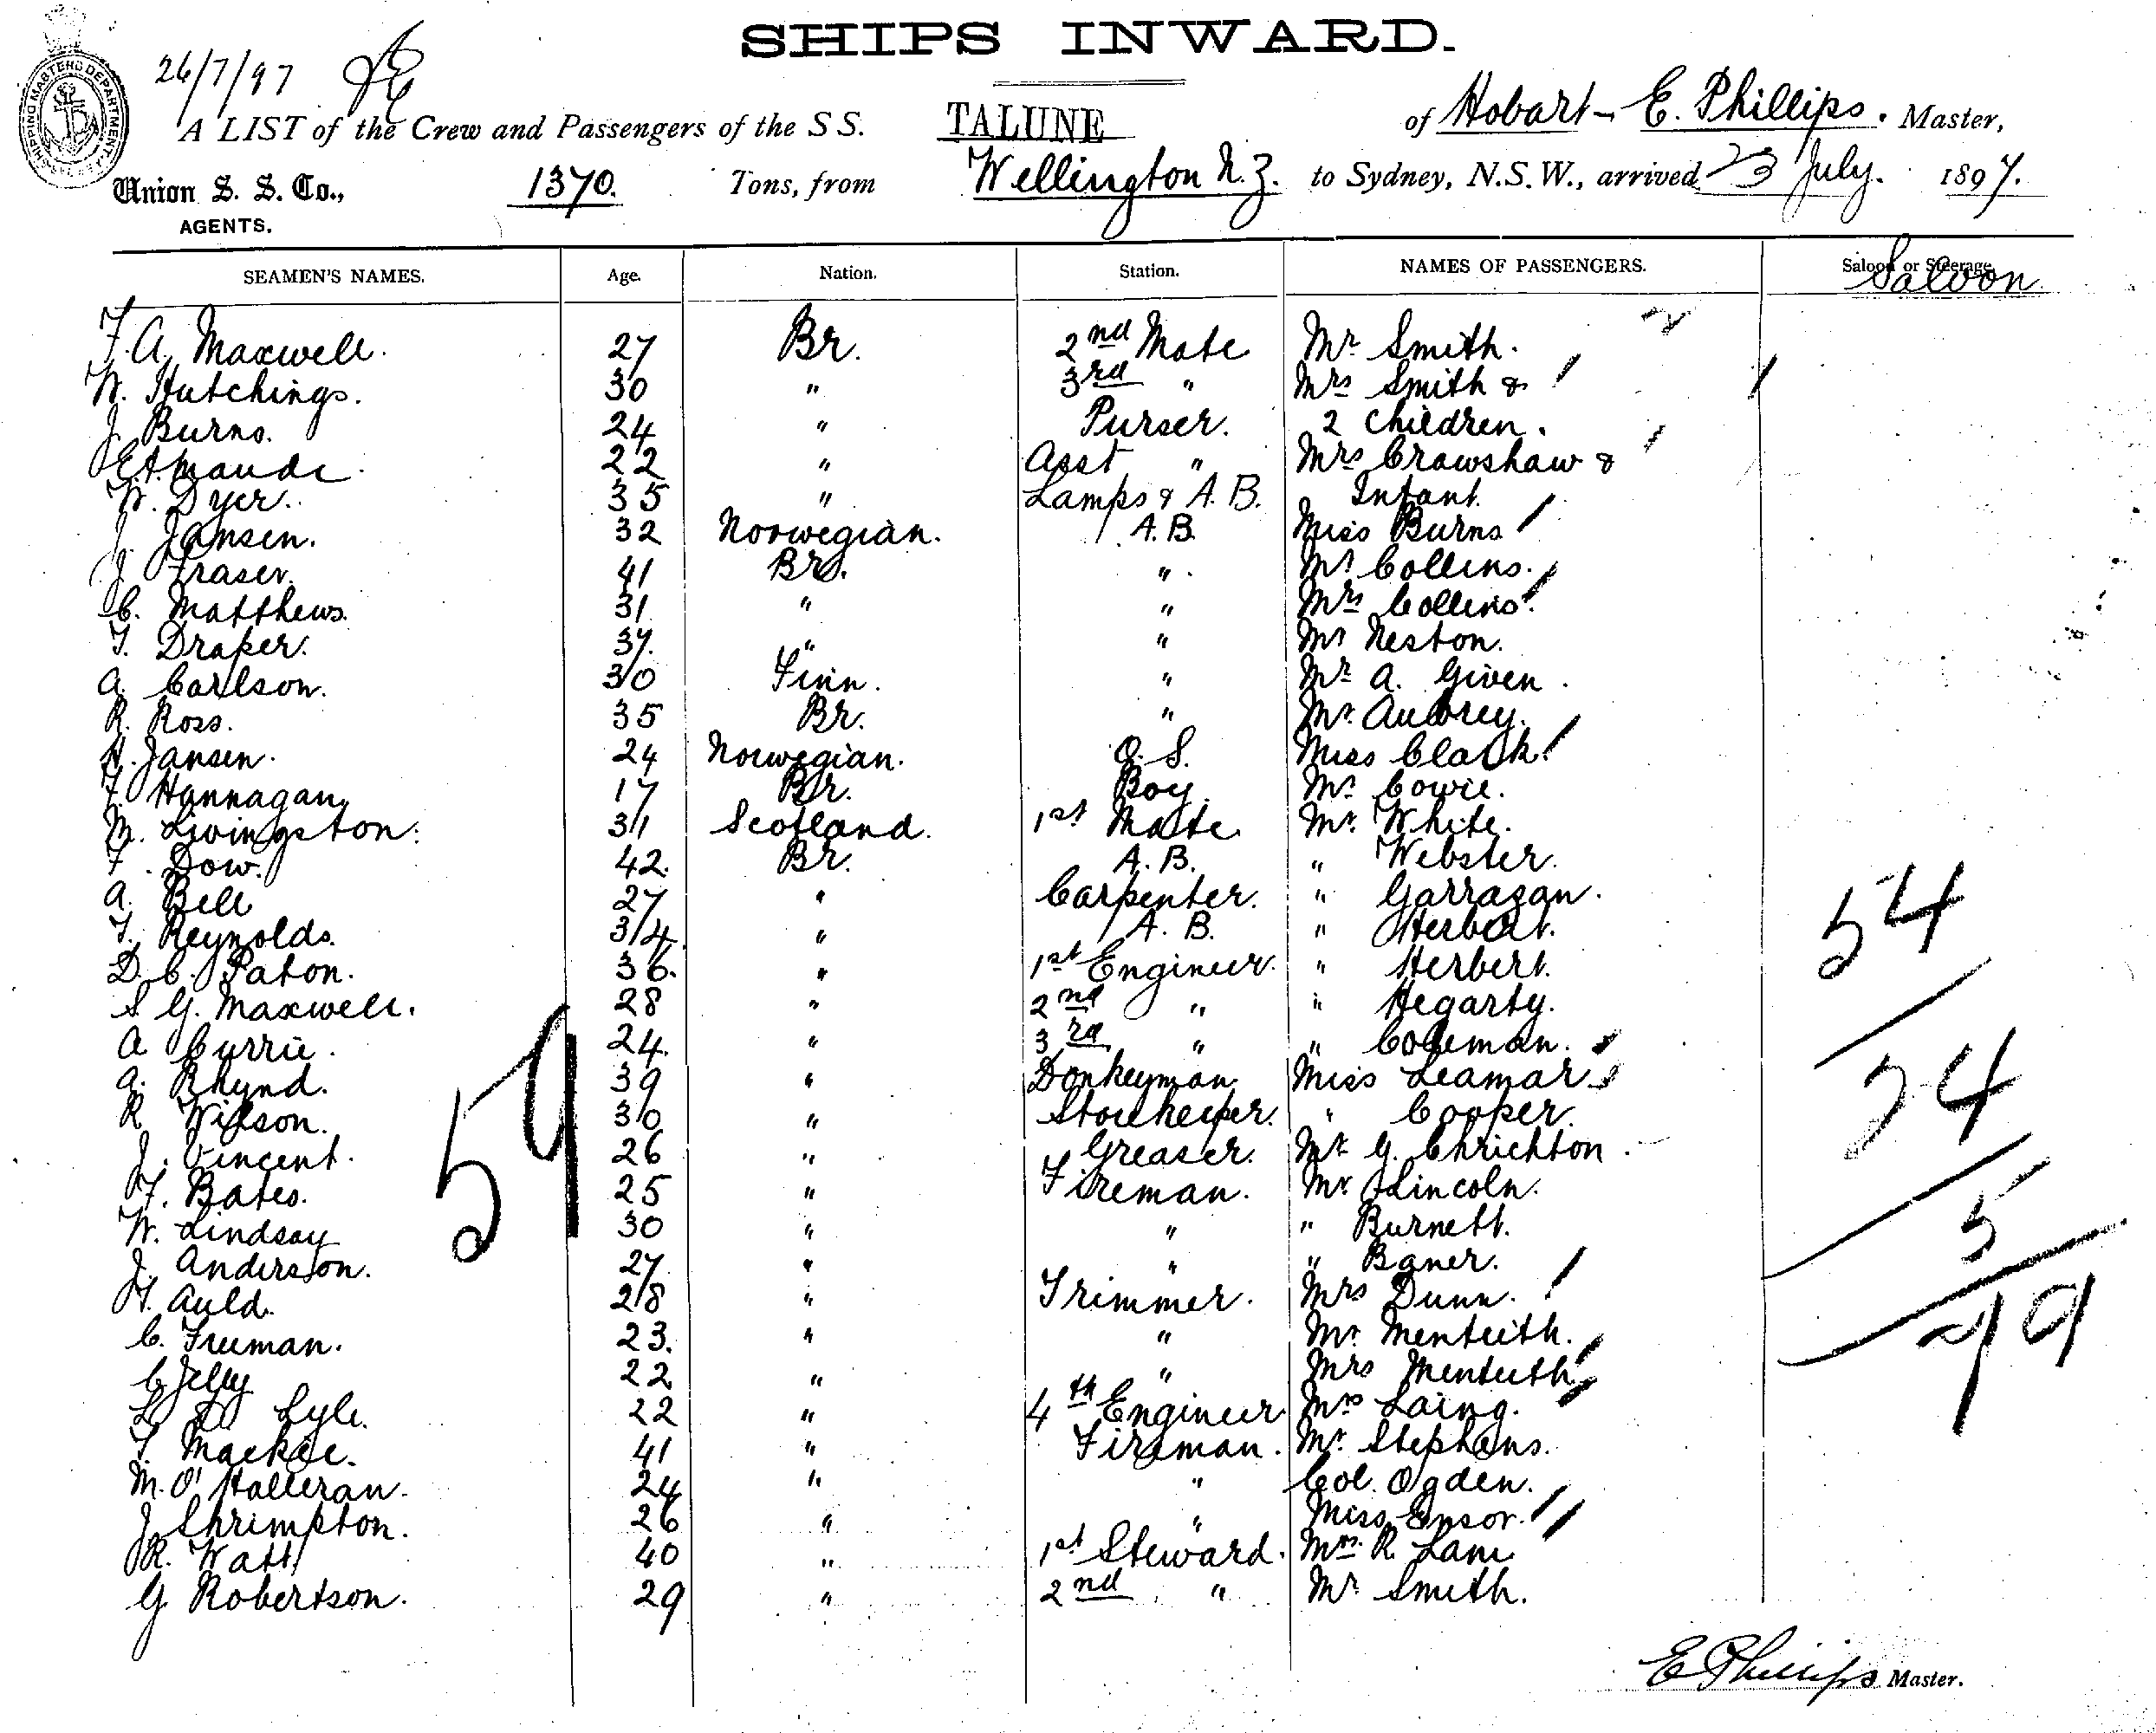 SHIPS INWARD.
26/7/97
SHIPPING MASTERS DEPARTMENT
A LIST of the Crew and Passengers of the S S. TALUNE of Hobart - E. Phillips. Master,
Union S. S. Co., 1370. Tons, from Wellington N.Z. to Sydney, N.S.W., arrived 23 July. 1897.
AGENTS.
SEAMEN'S NAMES. Age. Nation. Station. NAMES OF PASSENGERS. Saloon or Steerage
Saloon
F. A. Maxwell. 27 Br. 2nd Mate Mr Smith.
W. Hutchings. 30 " 3rd " Mrs Smith &
J. Burns. 24 " Purser. 2 Children.
Maude 22 " Asst " Mrs Crawshaw &
W. Dyer. 35 " Lamps & A.B. Infant.
J. Jansen. 32 Norwegian. A.B. Miss Burns
J. Fraser. 41 Br. " Mr Collins.
C. Matthews. 31 " " Mrs Collins.
T. Draper. 37. " " Mr Neston.
A. Carlson. 30 Finn. " Mr A. Given.
R. Ross. 35 Br. " Mr. Aubrey.
H. Jansen. 24 Norwegian. O.S. Miss Clark.
Hannagan 17 Br. Boy. Mr. Cowie.
M. Livingston. 31 Scotland. 1st Mate Mr. White.
F. Dow. 42. Br. A.B. " Webster.
A. Bell 27 " Carpenter. " Garragan.
T. Reynolds. 34 " A. B. " Herbert.
D. C. Paton. 36. " 1st Engineer. " Herbert.
S G. Maxwell. 28 " 2nd " " Hegarty.
A Currie. 24. " 3rd " " Coleman.
A. Rhynd. 39 " Donkeyman Miss Leamar
R Wilson. 30 " Storekeeper. " Cooper.
J. Vincent. 26 " Greaser. Mr G. Chrichton.
F. Bates. 25 " Fireman. Mr. Lincoln.
W. Lindsay 30 " " " Burnett.
J. Anderson. 27. " " " Baner.
H. Auld. 28 " Trimmer. Mrs Dunn.
C. Freeman. 23. " " Mr. Menteith.
C Jelly 22 " " Mrs Menteith
Lyle. 22 " 4th Engineer Mrs Laing.
T. Mackie. 41 " Fireman. Mr. Stephens.
M. O'Halleran. 24 " " Col. Ogden.
J Shrimpton. 26 " " Miss Ensor.
R. Watt 40 " 1st Steward. R. Lane
G Robertson. 29 " 2nd " Mr Smith.
59
54
24
5
79
E Phillips Master.